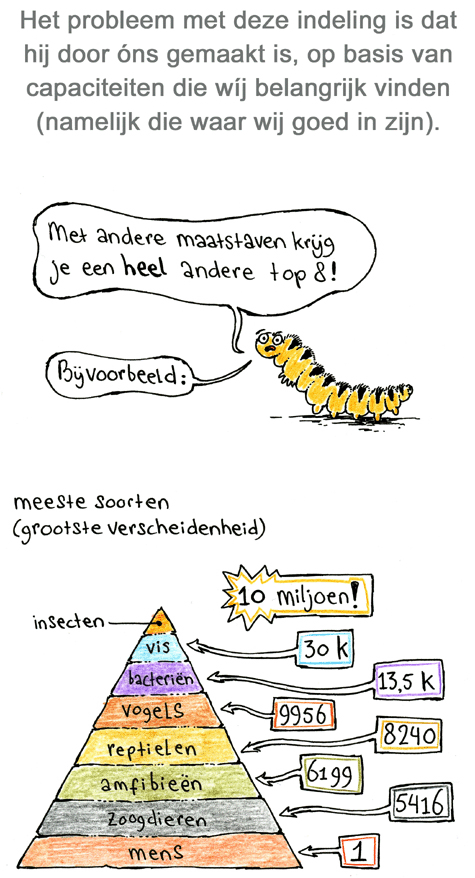 Het probleem met deze indeling is dat
hij door óns gemaakt is, op basis van
capaciteiten die wíj belangrijk vinden
(namelijk die waar wij goed in zijn).
Met andere maatstaven krijg
je een heel andere top 8!
Bijvoorbeeld:
meeste soorten
(grootste verscheidenheid)
10 miljoen!
insecten
vis
30 k
bacteriën
13,5 k
vogels
9956
reptielen
8240
amfibieën
6199
zoogdieren
5416
mens
1